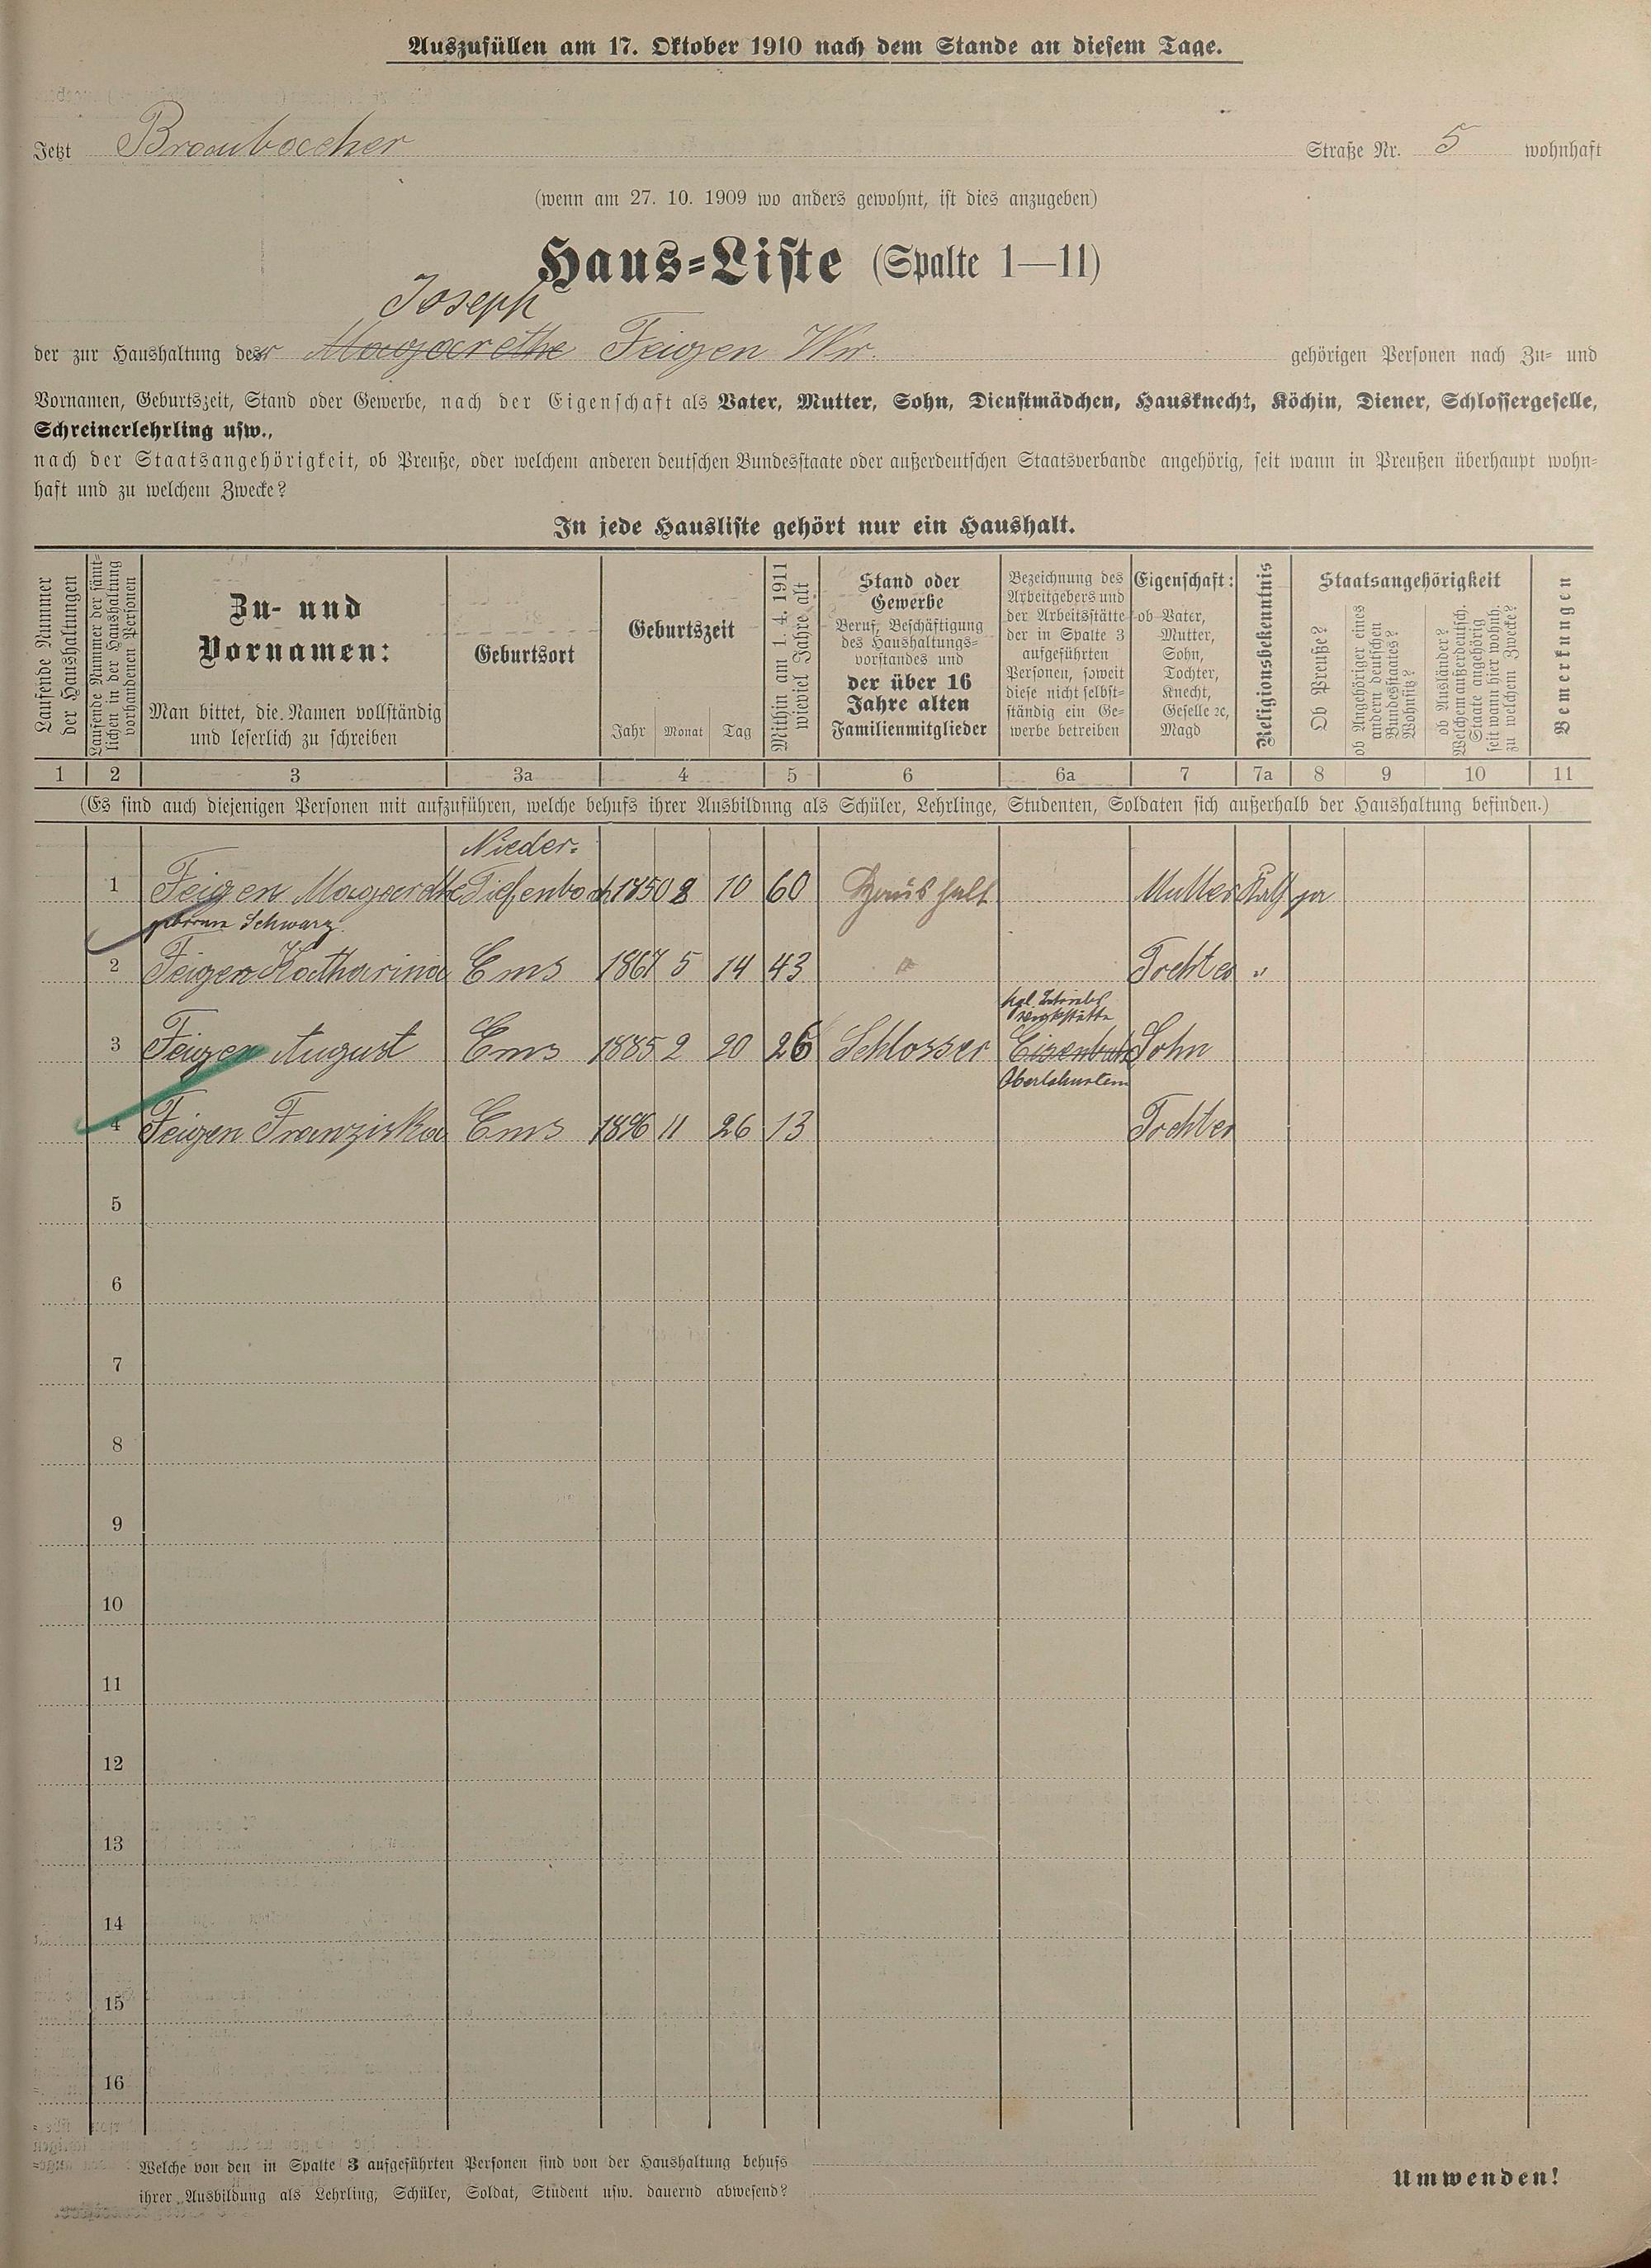 Auszufüllen am 17. Oktober 1910 nach dem Stande an diesem Tage.
Jetzt Braubacher Straße Nr. 5 wohnhaft
(wenn am 27. 10. 1909 wo anders gewohnt, ist dies anzugeben)
Haus-Liste (Spalte 1—11)
Joseph
der zur Haushaltung der Magarethe Feigen Ww. gehörigen Personen nach Zu- und
Vornamen, Geburtszeit, Stand oder Gewerbe, nach der Eigenschaft als Vater, Mutter, Sohn, Dienstmädchen, Hausknecht, Köchin, Diener, Schlossergeselle,
Schreinerlehrling usw.,
nach der Staatsangehörigkeit, ob Preuße, oder welchem anderen deutschen Bundesstaate oder außerdeutschen Staatsverbande angehörig, seit wann in Preußen überhaupt wohn-
haft und zu welchem Zwecke?
In jede Hausliste gehört nur ein Haushalt.
Laufende Nummer
der Haushaltungen
Laufende Nummer der sämt-
lichen in der Haushaltung
vorhandenen Personen
Zu- und
Vornamen:
Man bittet, die Namen vollständig
und leserlich zu schreiben
Geburtsort
Geburtszeit
Jahr Monat Tag
Mithin am 1. 4. 1911
wieviel Jahre alt
Stand oder
Gewerbe
Beruf, Beschäftigung
des Haushaltungs-
vorstandes und
der über 16
Jahre alten
Familienmitglieder
Bezeichnung des
Arbeitgebers und
der Arbeitsstätte
der in Spalte 3
aufgeführten
Personen, soweit
diese nicht selbst-
ständig ein Ge-
werbe betreiben
Eigenschaft:
ob Vater,
Mutter,
Sohn,
Tochter,
Knecht,
Geselle ꝛc,
Magd
Religionsbekenntnis
Staatsangehörigkeit
Ob Preuße?
ob Angehöriger eines
andern deutschen
Bundesstaates?
Wohnsitz?
ob Ausländer?
Welchem außerdeutsch.
Staate angehörig
seit wann hier wohnh.
zu welchem Zwecke?
Bemerkungen
1 2 3 3a 4 5 6 6a 7 7a 8 9 10 11
(Es sind auch diejenigen Personen mit aufzuführen, welche behufs ihrer Ausbildung als Schüler, Lehrlinge, Studenten, Soldaten sich außerhalb der Haushaltung befinden.)
Nieder-
1 Feigen Magarethe Tiefenbach 1850 8 10 60 Haushalt Mutter Kath ja
geborene Schwarz
2 Feigen Katharina Ems 1867 5 14 43 " Tochter "
kgl. Betriebs
werkstätte
3 Feigen August Ems 1885 2 20 26 Schlosser Eisenbahn Sohn
Oberlahnstein
4 Feigen Franziska Ems 1896 11 26 13 Tochter
5
6
7
8
9
10
11
12
13
14
15
16
Welche von den in Spalte 3 aufgeführten Personen sind von der Haushaltung behufs
ihrer Ausbildung als Lehrling, Schüler, Soldat, Student usw. dauernd abwesend?
Umwenden!